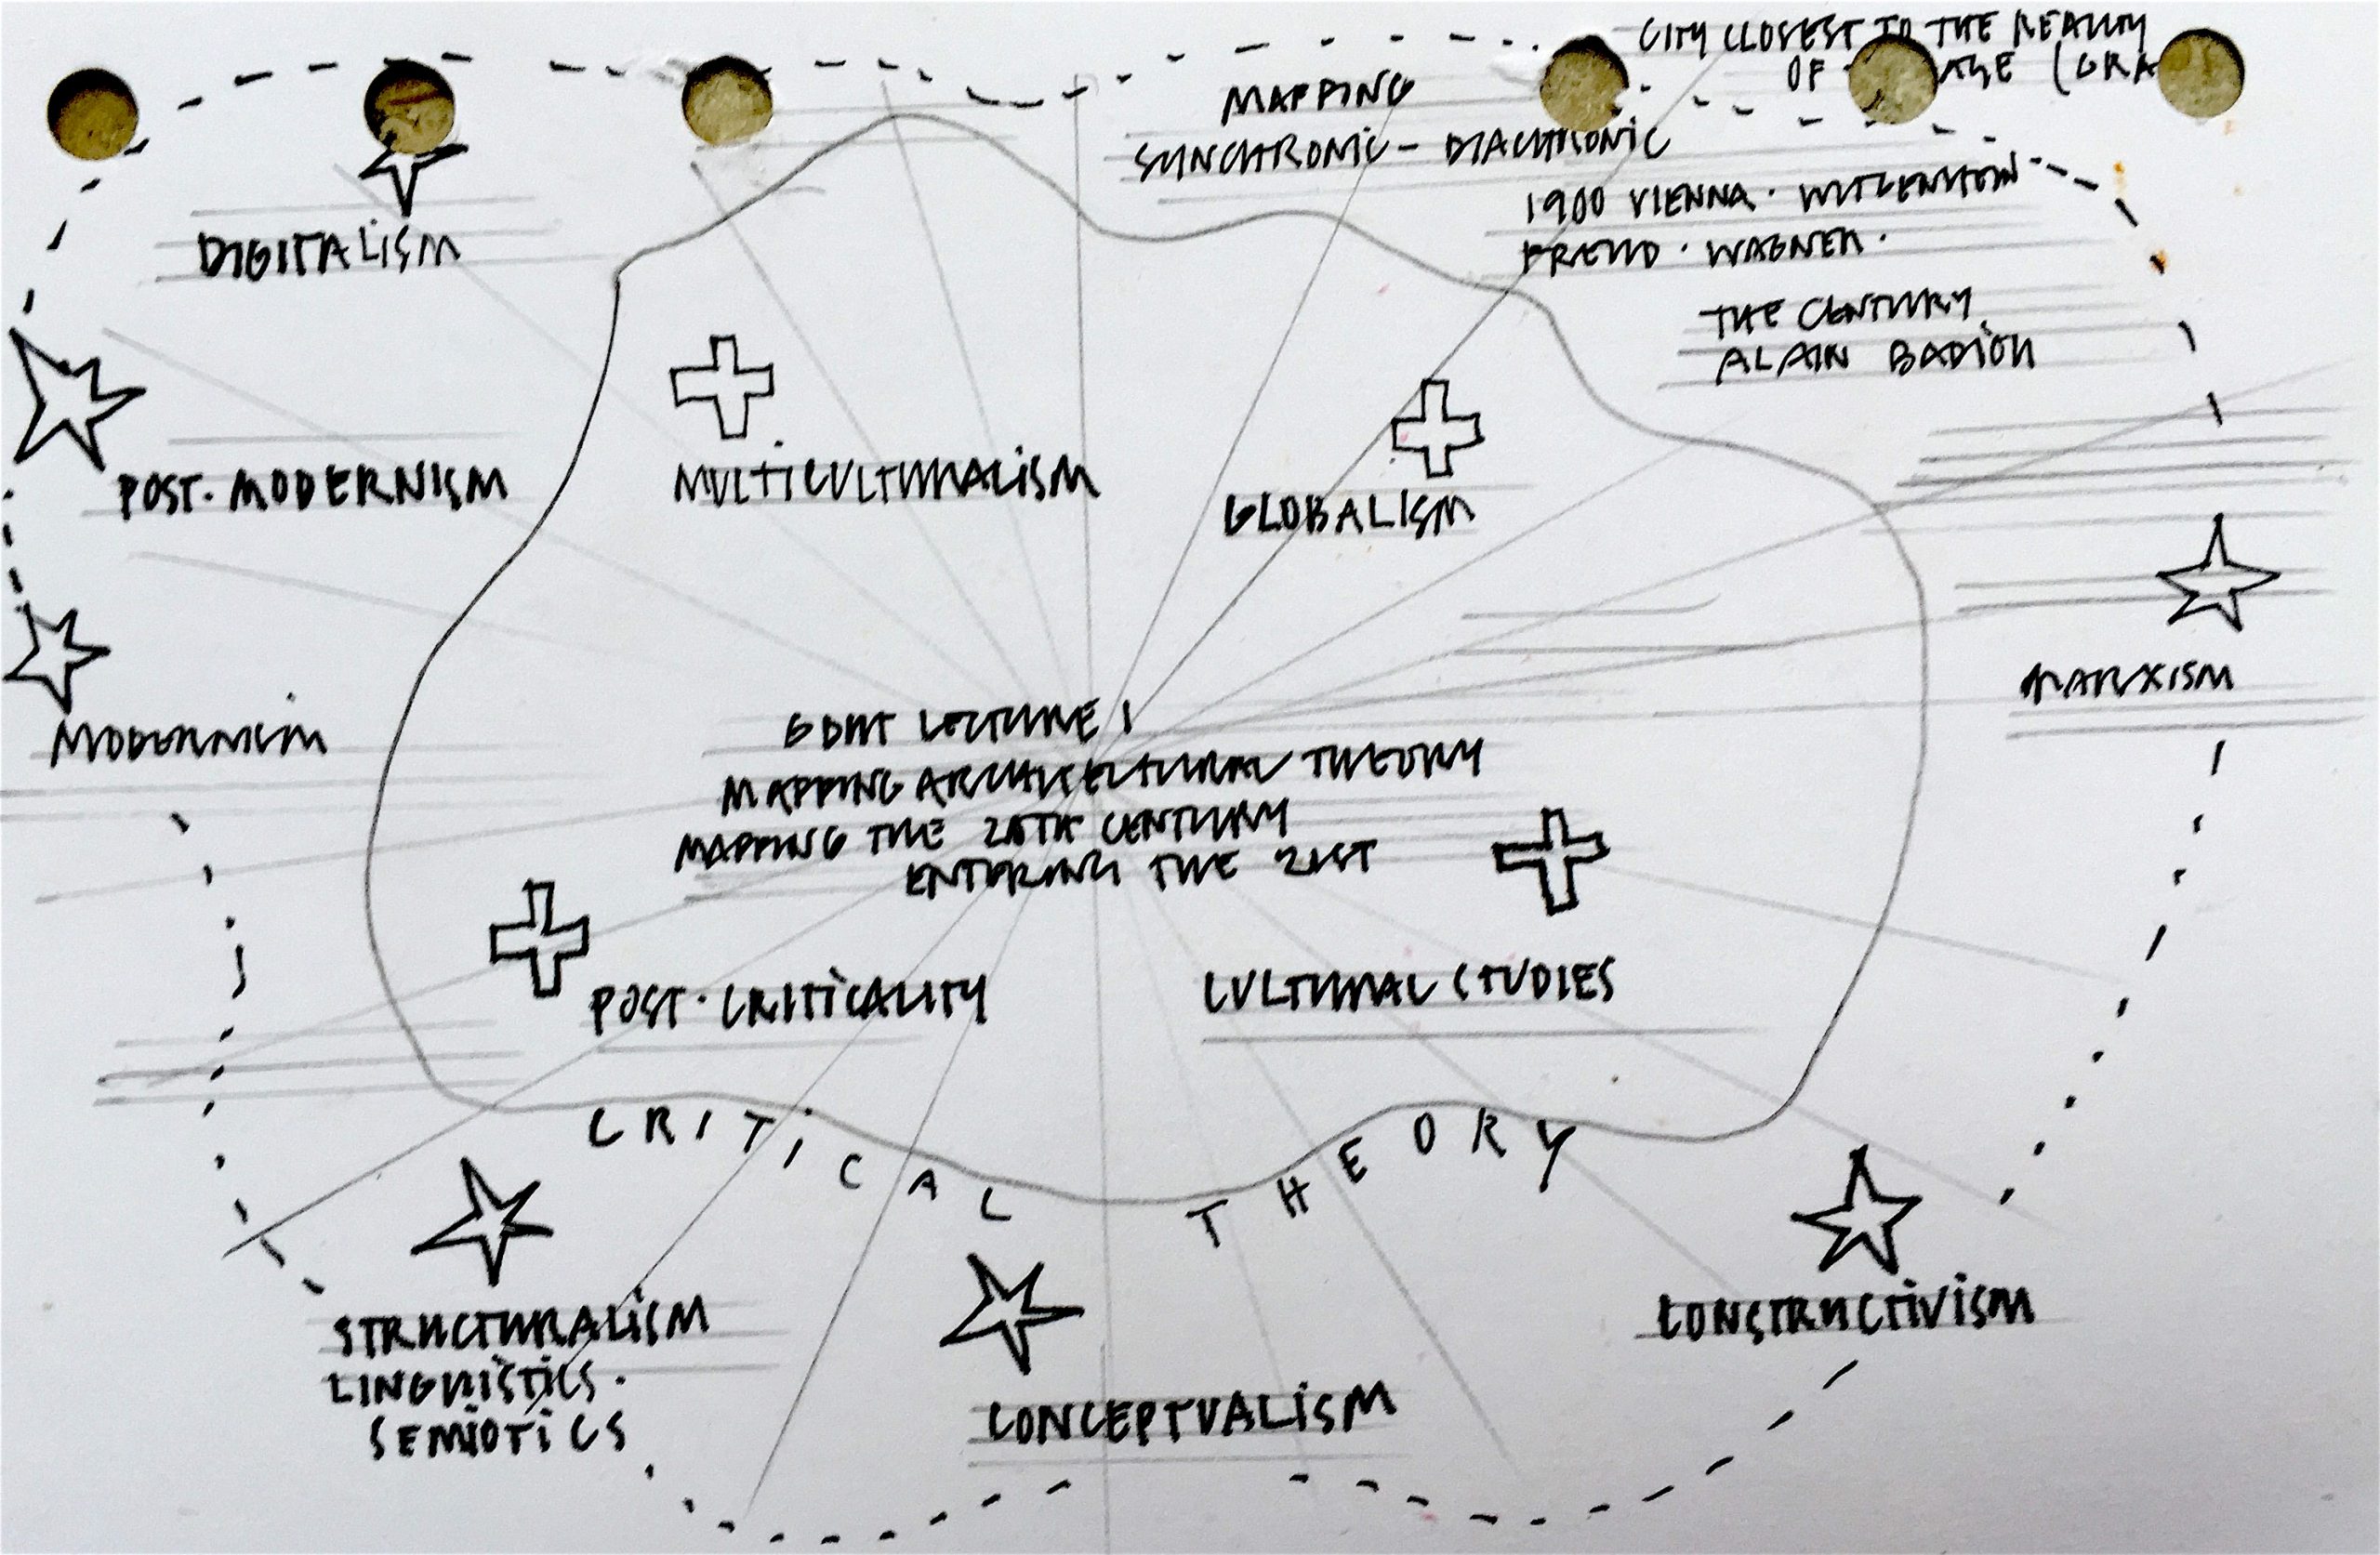 CITY CLOSEST TO THE REALITY
OF
MAPPING
SYNCHRONIC - DIACHRONIC
1900 VIENNA · WITGENSTEIN
FREUD · WAGNER ·
THE CENTURY
ALAIN BADIOU
DIGITALISM
POST · MODERNISM
MULTICULTURALISM
GLOBALISM
MODERNISM
MARXISM
LECTURE 1
MAPPING ARCHITECTURAL THEORY
MAPPING THE 20TH CENTURY
ENTERING THE 21ST
POST · CRITICALITY
CULTURAL STUDIES
CRITICAL THEORY
STRUCTURALISM
LINGUISTICS ·
SEMIOTICS
CONCEPTUALISM
CONSTRUCTIVISM